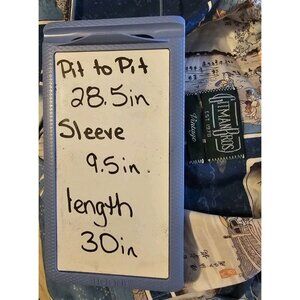 Pit to Pit
28.5in
Sleeve
9.5in.
length
30in
GITMAN BROS
EST. 1978
Vintage